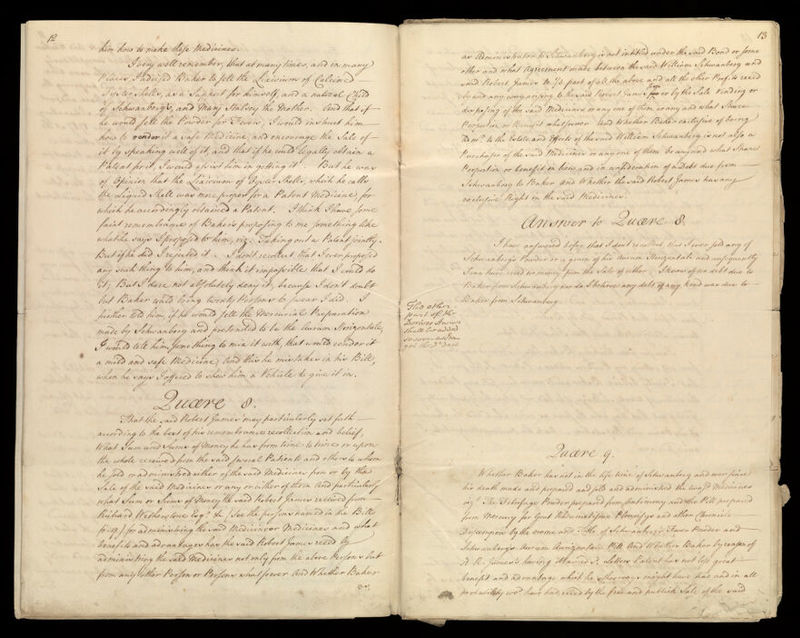 12
him how to make these Medicines.
I very well remember, that at many times, and in many
Places I advised Baker to sell the Lixivium of Calcined
Oyster Shells, as a Support for himself, and a natural Child
of Schwanberg's, and Mary Stalvey the Mother. And that if
he would sell the Powder for Fevers, I would instruct him
how to render it a safe Medicine, and encourage the Sale of
it by speaking well of it, and that if he could legally obtain a
Patent for it, I would assist him in getting it. But he was
of Opinion that the Lixivium of Oyster Shells, which he calls
the Liquid Shell was more proper for a Patent Medicine, for
which he accordingly obtained a Patent. I think I have some
faint remembrance of Baker's proposing to me something like
what he says I proposed to him, viz. Taking out a Patent jointly.
But if he did I rejected it. I dont recollect that I ever proposed
any such thing to him, and think it impossible that I could do
it; But I dare not absolutely deny it, because I don't doubt
but Baker could bring twenty Persons to swear I did. I
further told him, if he would sell the Mercurial Preparation
made by Schwanberg and pretended to be the Aurum Horizontale,
I would tell him some thing to mix it with, that would render it
a mild and safe Medicine; And this he mistakes in his Bill,
when he says I offered to shew him a Vehicle to give it in.
Quære 8.
That the said Robert James may particularly set forth
according to the best of his remembrance recollection and belief,
What Sum and Sums of Money he has from time to time or upon
the whole received from the said several Patients and others to whom
he sold or administred either of the said Medicines from or by the
Sale of the said Medicines or any or either of them And particularly
what Sum or Sums of Money the said Robert James received from
Richard Wetherstone Esqr. &c. for the persons named in the Bill
for administring the said Medicine or Medicines and what
benefits and advantages has the said Robert James reced by
administring the said Medicines not only from the above Persons but
from any other Person or Persons whatsoever And Whether Baker
13
as Administrator to Schwanberg is not intitled under the said Bond or some
other and what Agreement made between the said William Schwanberg and
said Robert James to part of all the above and all the other Profits reced
by and any way accruing to the said Robert James from or by the Sale Vending or
disposing of the said Medicines or any one of them or any and what Share
Proportion or Benefit whatsoever And Whether Baker exclusive of being
Admor. to the Estate and Effects of the said William Schwanberg is not also a
Purchaser of the said Medicines or any one of them &
what Share
Proportion or benefit in them and in consideration of a debt due from
Schwanberg to Baker And Whether the said Robert James has any
exclusive Right in the said Medicines.
Answer to Quære 8.
I have answered before that I dont recollect that I ever sold any of
Schwanberg's Powder or a grain of his Aurum Horizontale and consequently
I can have reced no money from the Sale of either. I know of no debt due to
Baker from Schwanberg nor do I believe any debt of any kind was due to
Baker from Schwanberg.
The other
part of the
Answer
shall be added
Quære 9.
Whether Baker has not in the life time of Schwanberg and ever since
his death made and prepared and sold and administred the two Medicines
viz. The Febrifuge Powder prepared from Antimony and the Pill prepared
from Mercury for Gout Rheumatism Pleurisys and other Chronic
Distempers by the name and Title of Schwanberg's Fever Powder and
Schwanberg's Aurum Horizontale Pill And Whether Baker by reason of
R. James's having obtained Letters Patent has not lost great
benefit and advantage which he otherways might have had and in all
probability wod. have had reced by the free and publick Sale of the said